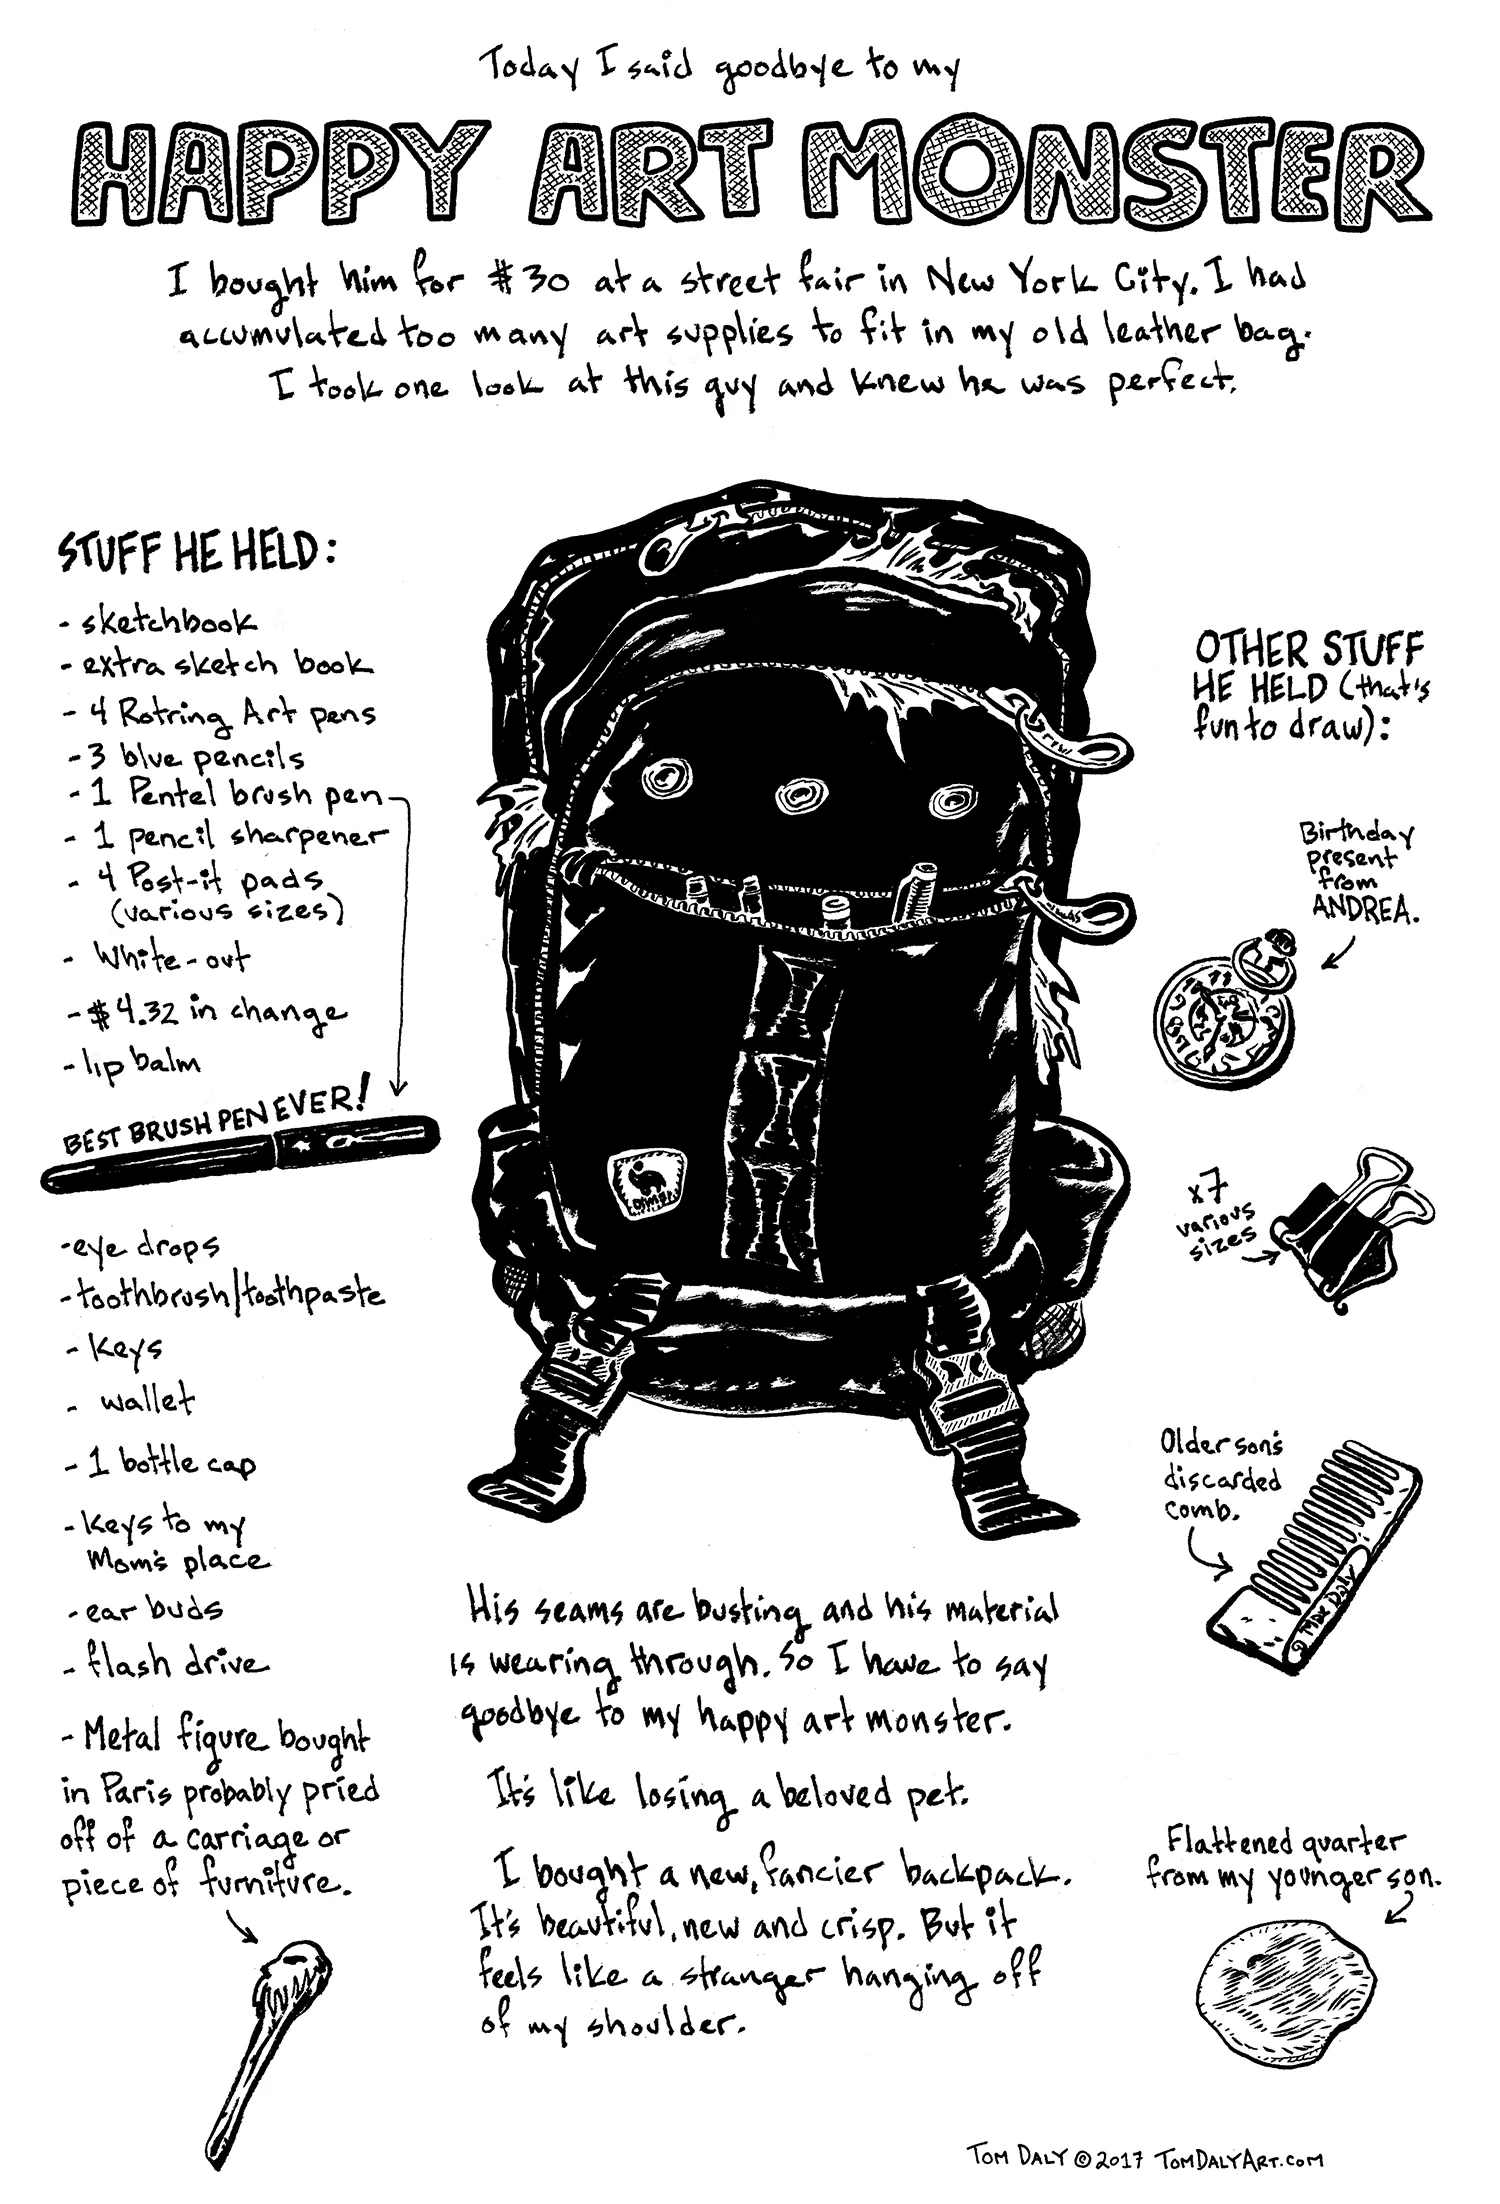 Today I said goodbye to my
HAPPY ART MONSTER
I bought him for $30 at a street fair in New York City. I had
accumulated too many art supplies to fit in my old leather bag.
I took one look at this guy and knew he was perfect.
STUFF HE HELD:
- sketchbook
- extra sketch book
- 4 Rotring Art pens
- 3 blue pencils
- 1 Pentel brush pen
- 1 pencil sharpener
- 4 Post-it pads
(various sizes)
- White-out
- $4.32 in change
- lip balm
BEST BRUSH PEN EVER!
- eye drops
- toothbrush/toothpaste
- keys
- wallet
- 1 bottle cap
- keys to my
Mom's place
- ear buds
- flash drive
- Metal figure bought
in Paris probably pried
off of a carriage or
piece of furniture.
OTHER STUFF
HE HELD (that's
fun to draw):
Birthday
present
from
ANDREA.
x7
various
sizes
Older son's
discarded
comb.
Max Daly
Flattened quarter
from my younger son.
His seams are busting and his material
is wearing through. So I have to say
goodbye to my happy art monster.
It's like losing a beloved pet.
I bought a new, fancier backpack.
It's beautiful, new and crisp. But it
feels like a stranger hanging off
of my shoulder.
TOM DALY © 2017 TOMDALYART.COM